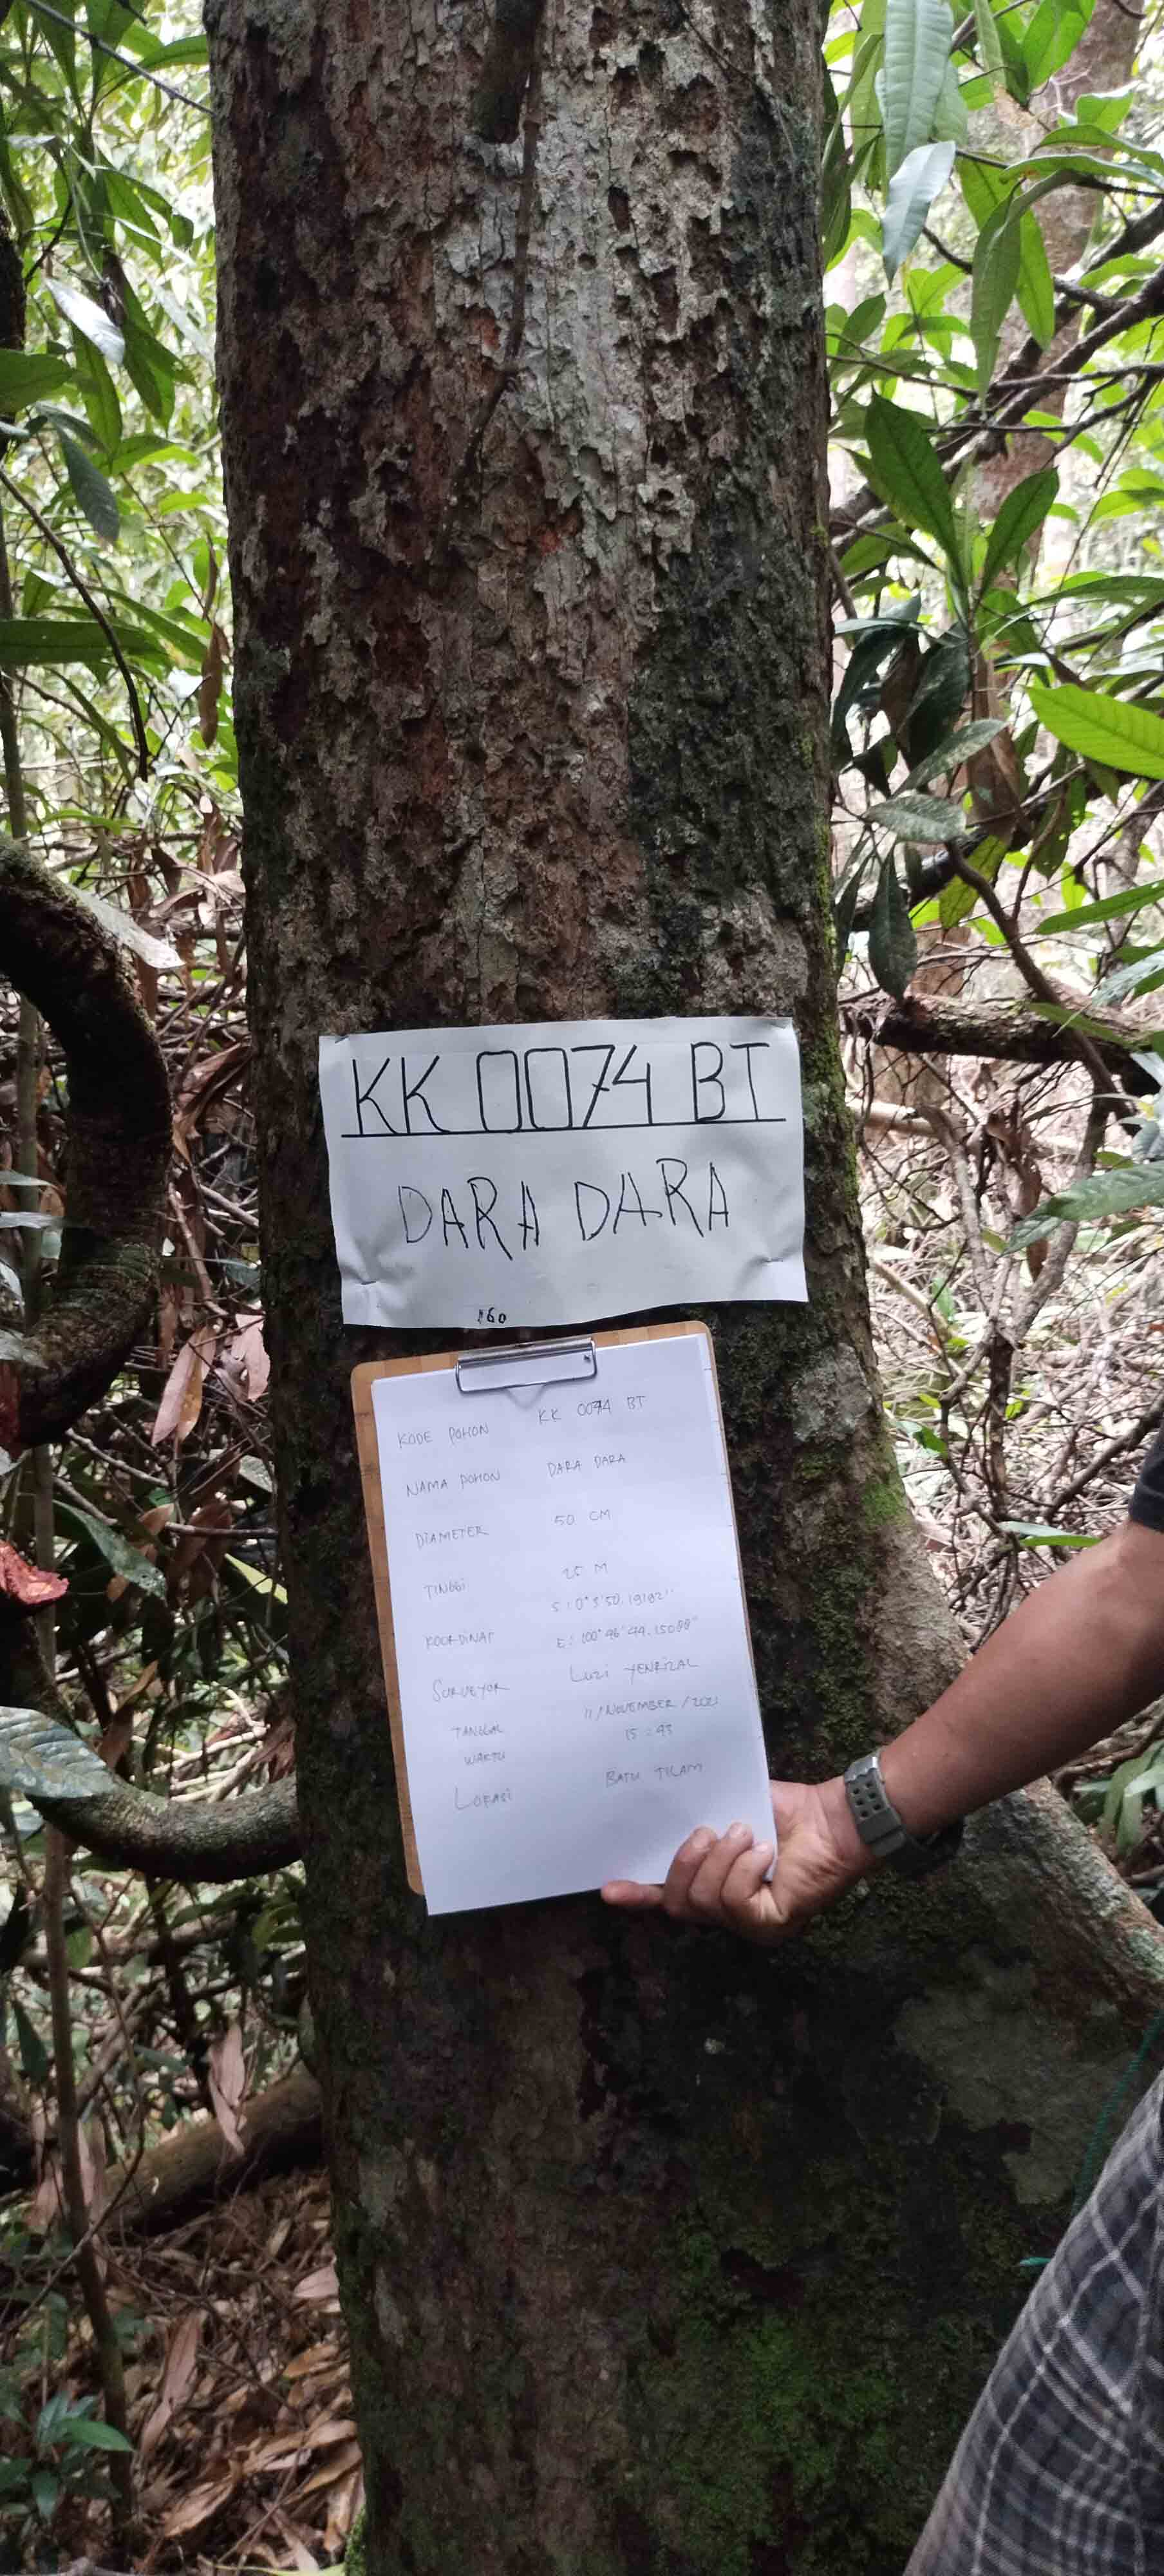 KK 0074 BT
DARA DARA
160
KODE POHON KK 0074 BT
NAMA POHON DARA DARA
DIAMETER 50 CM
TINGGI 25 M
S : 0° 3' 50. 19182"
KOORDINAT E : 100° 46' 44. 15088"
SURVEYOR LUZI YENRIZAL
TANGGAL 11 / NOVEMBER / 2021
WAKTU 15 : 43
LOKASI BATU TILAM